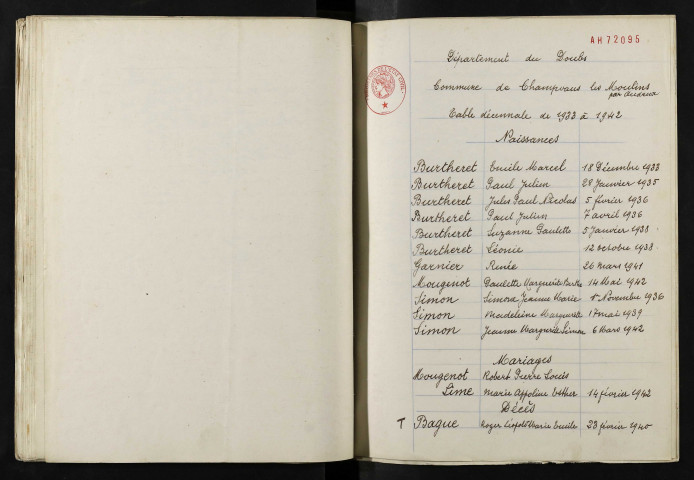 AH72095
Département du Doubs
Commune de Champvans les Moulins
par Audeux
Table décennale de 1933 à 1942
Naissances
Burtheret Emile Marcel 18 Décembre 1933
Burtheret Paul Julien 28 Janvier 1935
Burtheret Jules Paul Nicolas 5 février 1936
Burtheret Paul Julien 7 avril 1936
Burtheret Suzanne Paulette 5 Janvier 1938
Burtheret Léonie 12 octobre 1938
Garnier Renée 26 mars 1941
Mougenot Paulette Marguerite Berthe 14 Mai 1942
Simon Simone Jeanne Marie 1er Novembre 1936
Simon Madeleine Marguerite 17 mai 1939
Simon Jeanne Marguerite Simone 6 Mars 1942
Mariages
Mougenot Robert Pierre Louis
Sime Marie Appoline Esther 14 février 1942
Décès
T Bague Roger Léopold Marie Emile 23 février 1940